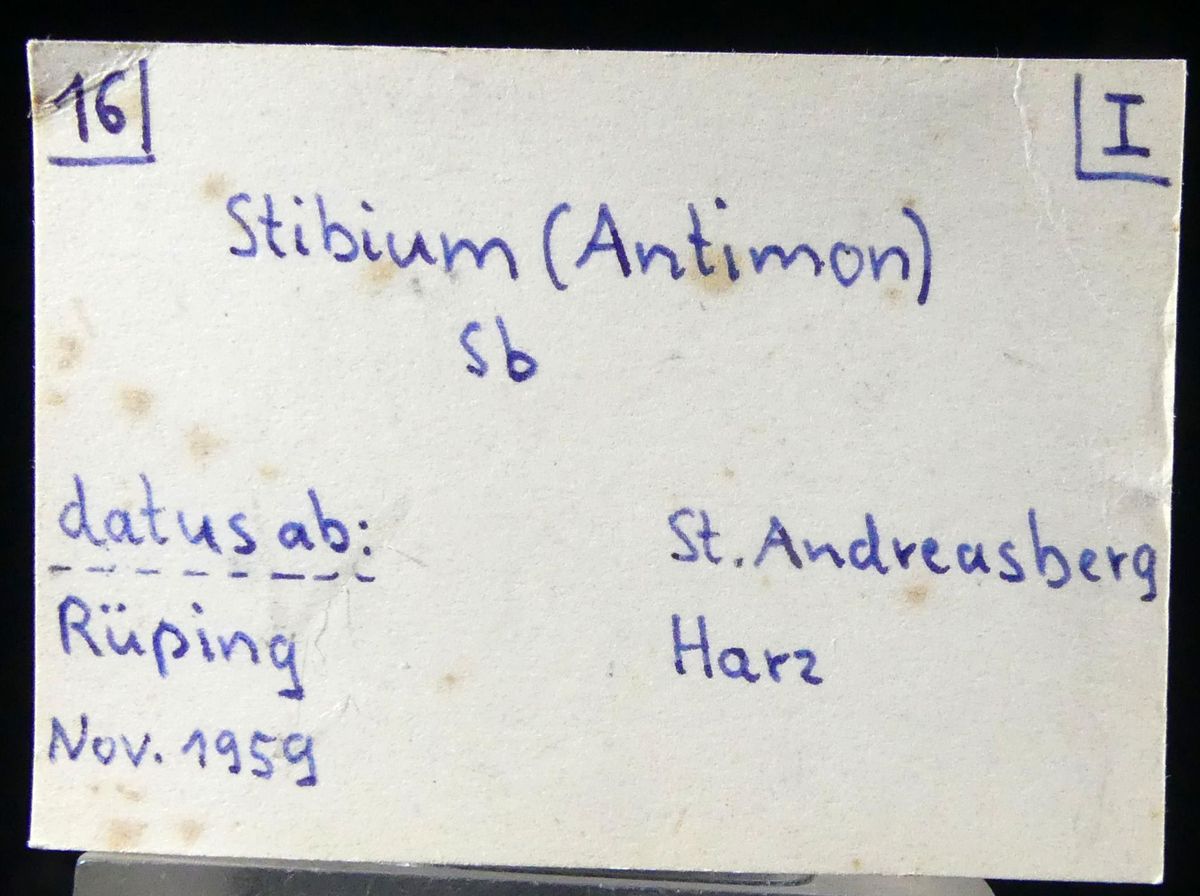 16
I
Stibium (Antimon)
Sb
datus ab:
Rüping
Nov. 1959
St. Andreasberg
Harz